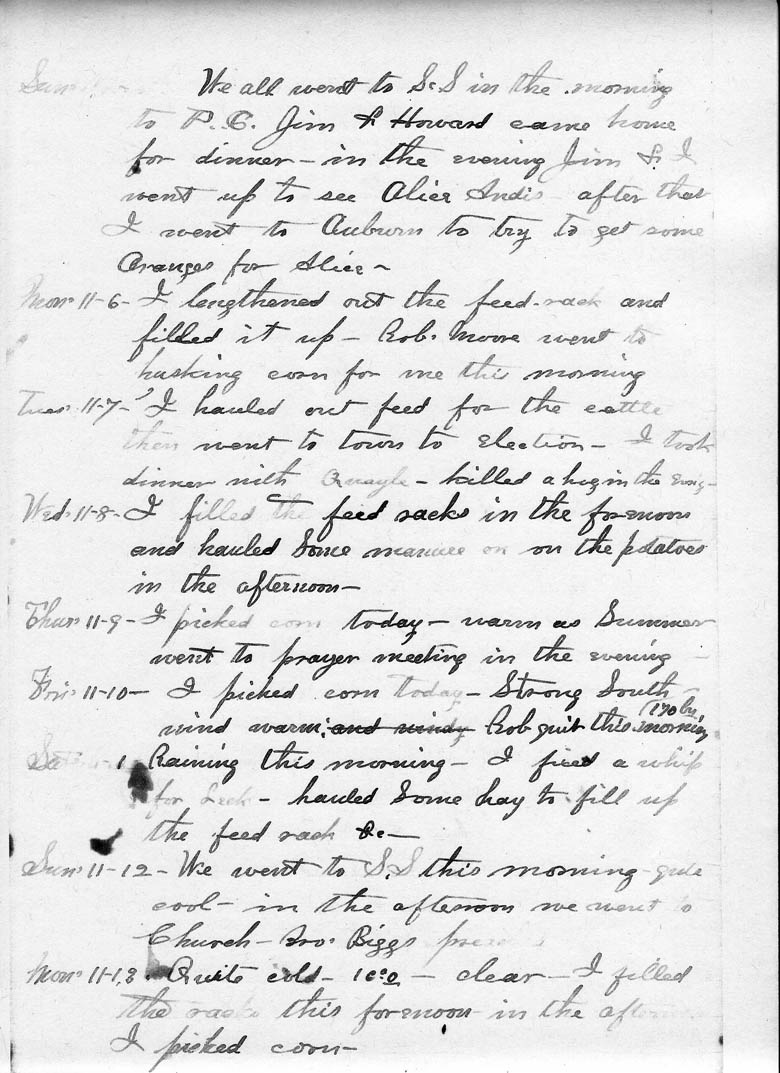 Sun We all went to S.S in the morning
to P.C. Jim & Howard came home
for dinner - in the evening Jim & I
went up to see Alice Andis - after that
I went to Auburn to try to get some
Oranges for Alice -
Mon. 11-6 - I lengthened out the feed-rack and
filled it up - Rob. Moore went to
husking corn for me this morning
Tues. 11-7 - I hauled out feed for the cattle
then went to town to Election - I took
dinner with Quayle - killed a hog in the Evnig -
Wed. 11-8 - I filled the feed racks in the forenoon
and hauled Some manure on on the potatoes
in the afternoon -
Thur. 11-9 - I picked corn today - warm as Summer
went to prayer meeting in the evening -
Fri. 11-10 - I picked corn today - Strong South -
170 bu.
wind warm; and windy Rob quit this morning
Raining this morning - I fixed a whip
for - hauled Some hay to fill up
the feed rack &c -
Sun. 11-12 - We went to S.S this morning - quite
cool - in the afternoon we went to
Church - Biggs
Mon. 11-13. Quite cold - - clear - I filled
the racks this forenoon - in the afternoon
I picked corn -